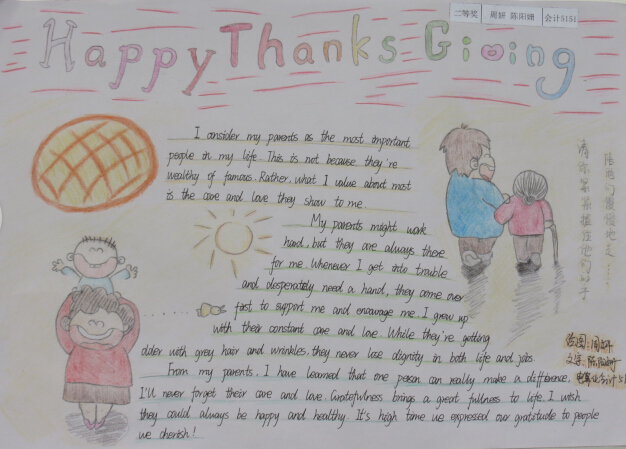 二等奖 周妍 陈阳姗 会计5151
Happy Thanks Giving
I consider my parents as the most important
people in my life. This is not because they're
wealthy of famous. Rather, what I value about most
is the care and love they show to me.
My parents might work
hard, but they are always there
for me. Whenever I get into trouble
and desperately need a hand, they come over
fast to support me and encourage me. I grew up
with their constant care and love. While they're getting
older with grey hair and wrinkles, they never lose dignity in both life and jobs.
From my parents, I have learned that one person can really make a difference.
I'll never forget their care and love. Gratefulness brings a great fullness to life. I wish
they could always be happy and healthy. It's high time we expressed our gratitude to people
we cherish!
陪他们慢慢地走……
请你紧紧握住他们的手
绘图:周妍
文字:陈阳姗
会计51